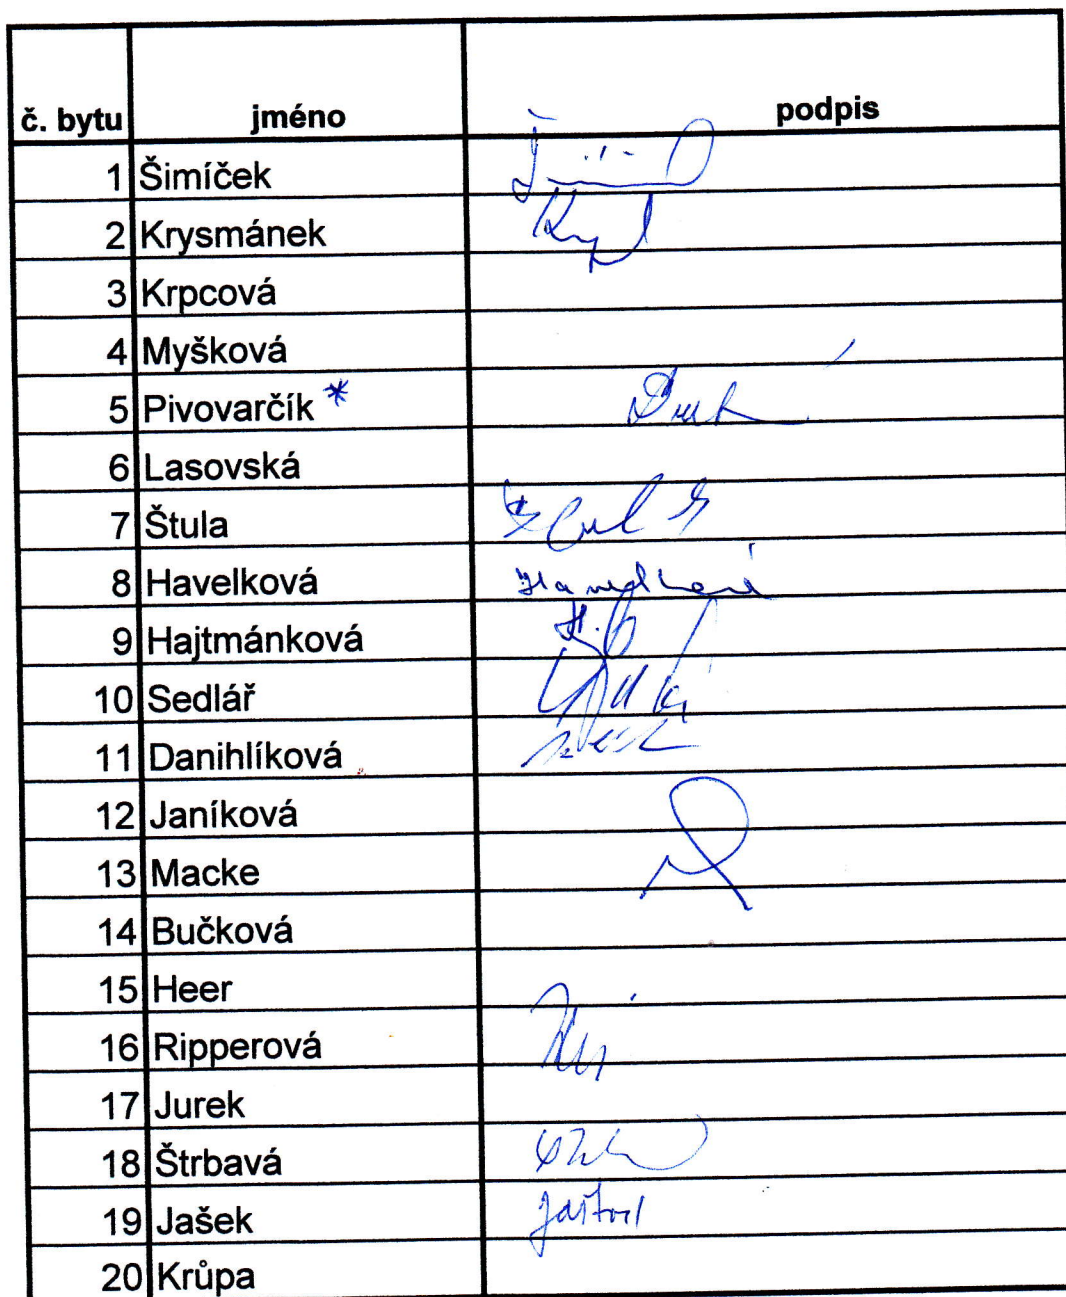 č. bytu jméno podpis
1 Šimíček
2 Krysmánek
3 Krpcová
4 Myšková
5 Pivovarčík *
6 Lasovská
7 Štula
8 Havelková Havelková
9 Hajtmánková
10 Sedlář
11 Danihlíková
12 Janíková
13 Macke
14 Bučková
15 Heer
16 Ripperová
17 Jurek
18 Štrbavá
19 Jašek
20 Krůpa